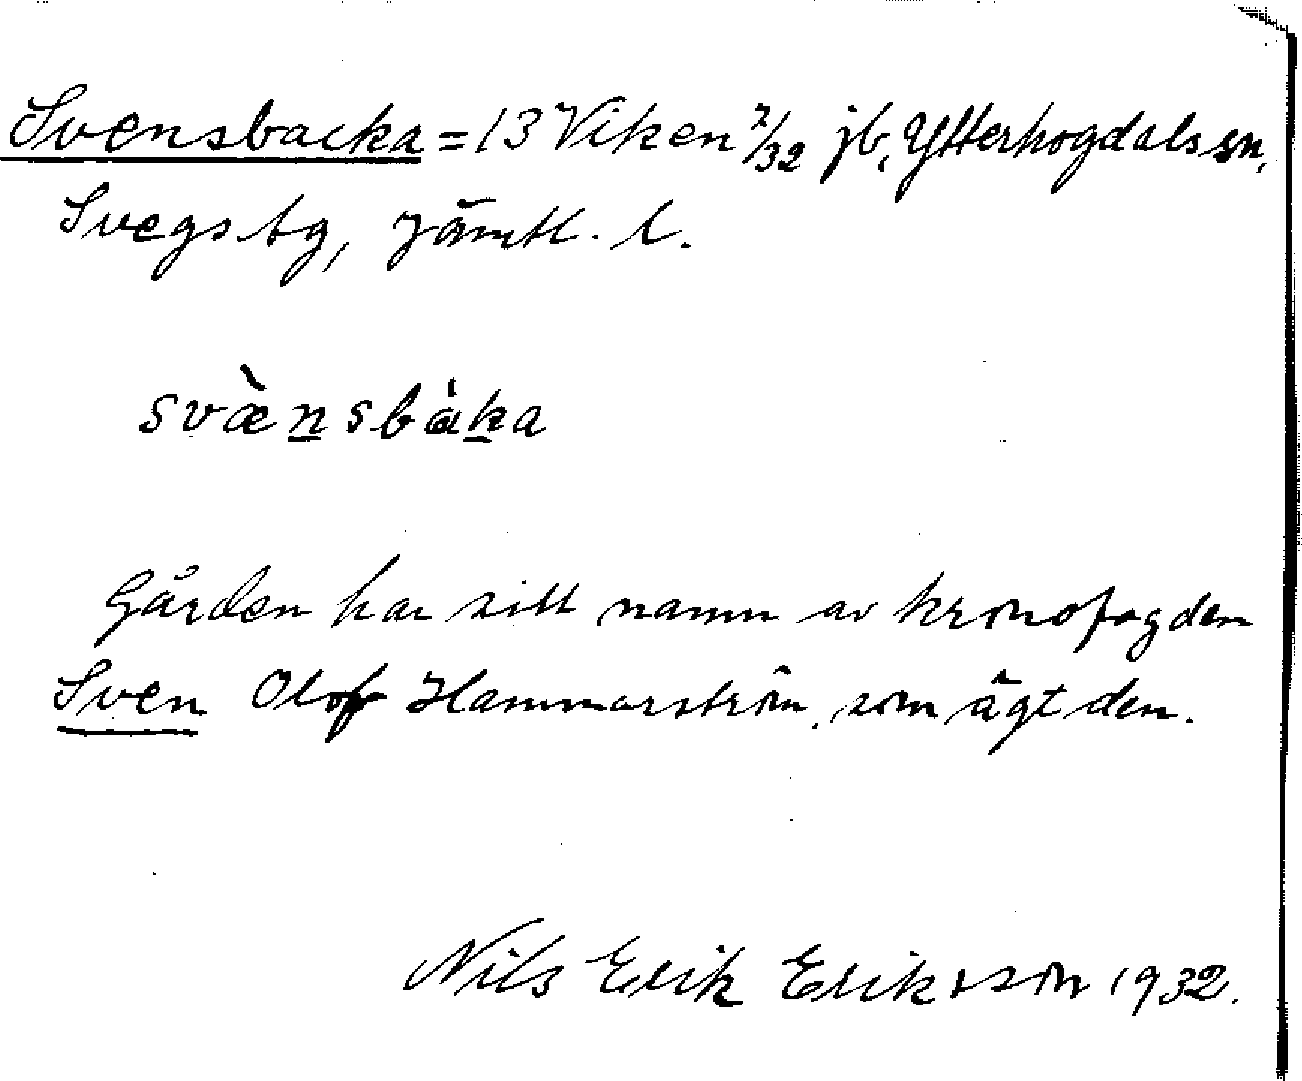 Svensbacka = 13 Viken 7/32 jb, Ytterhogdals sn,
Svegs tg, Jämtl. l.
svæ̀nsbáka
Gården har sitt namn av kronofogden
Sven Olof Hammarström, som ägt den.
Nils Erik Eriksson 1932.